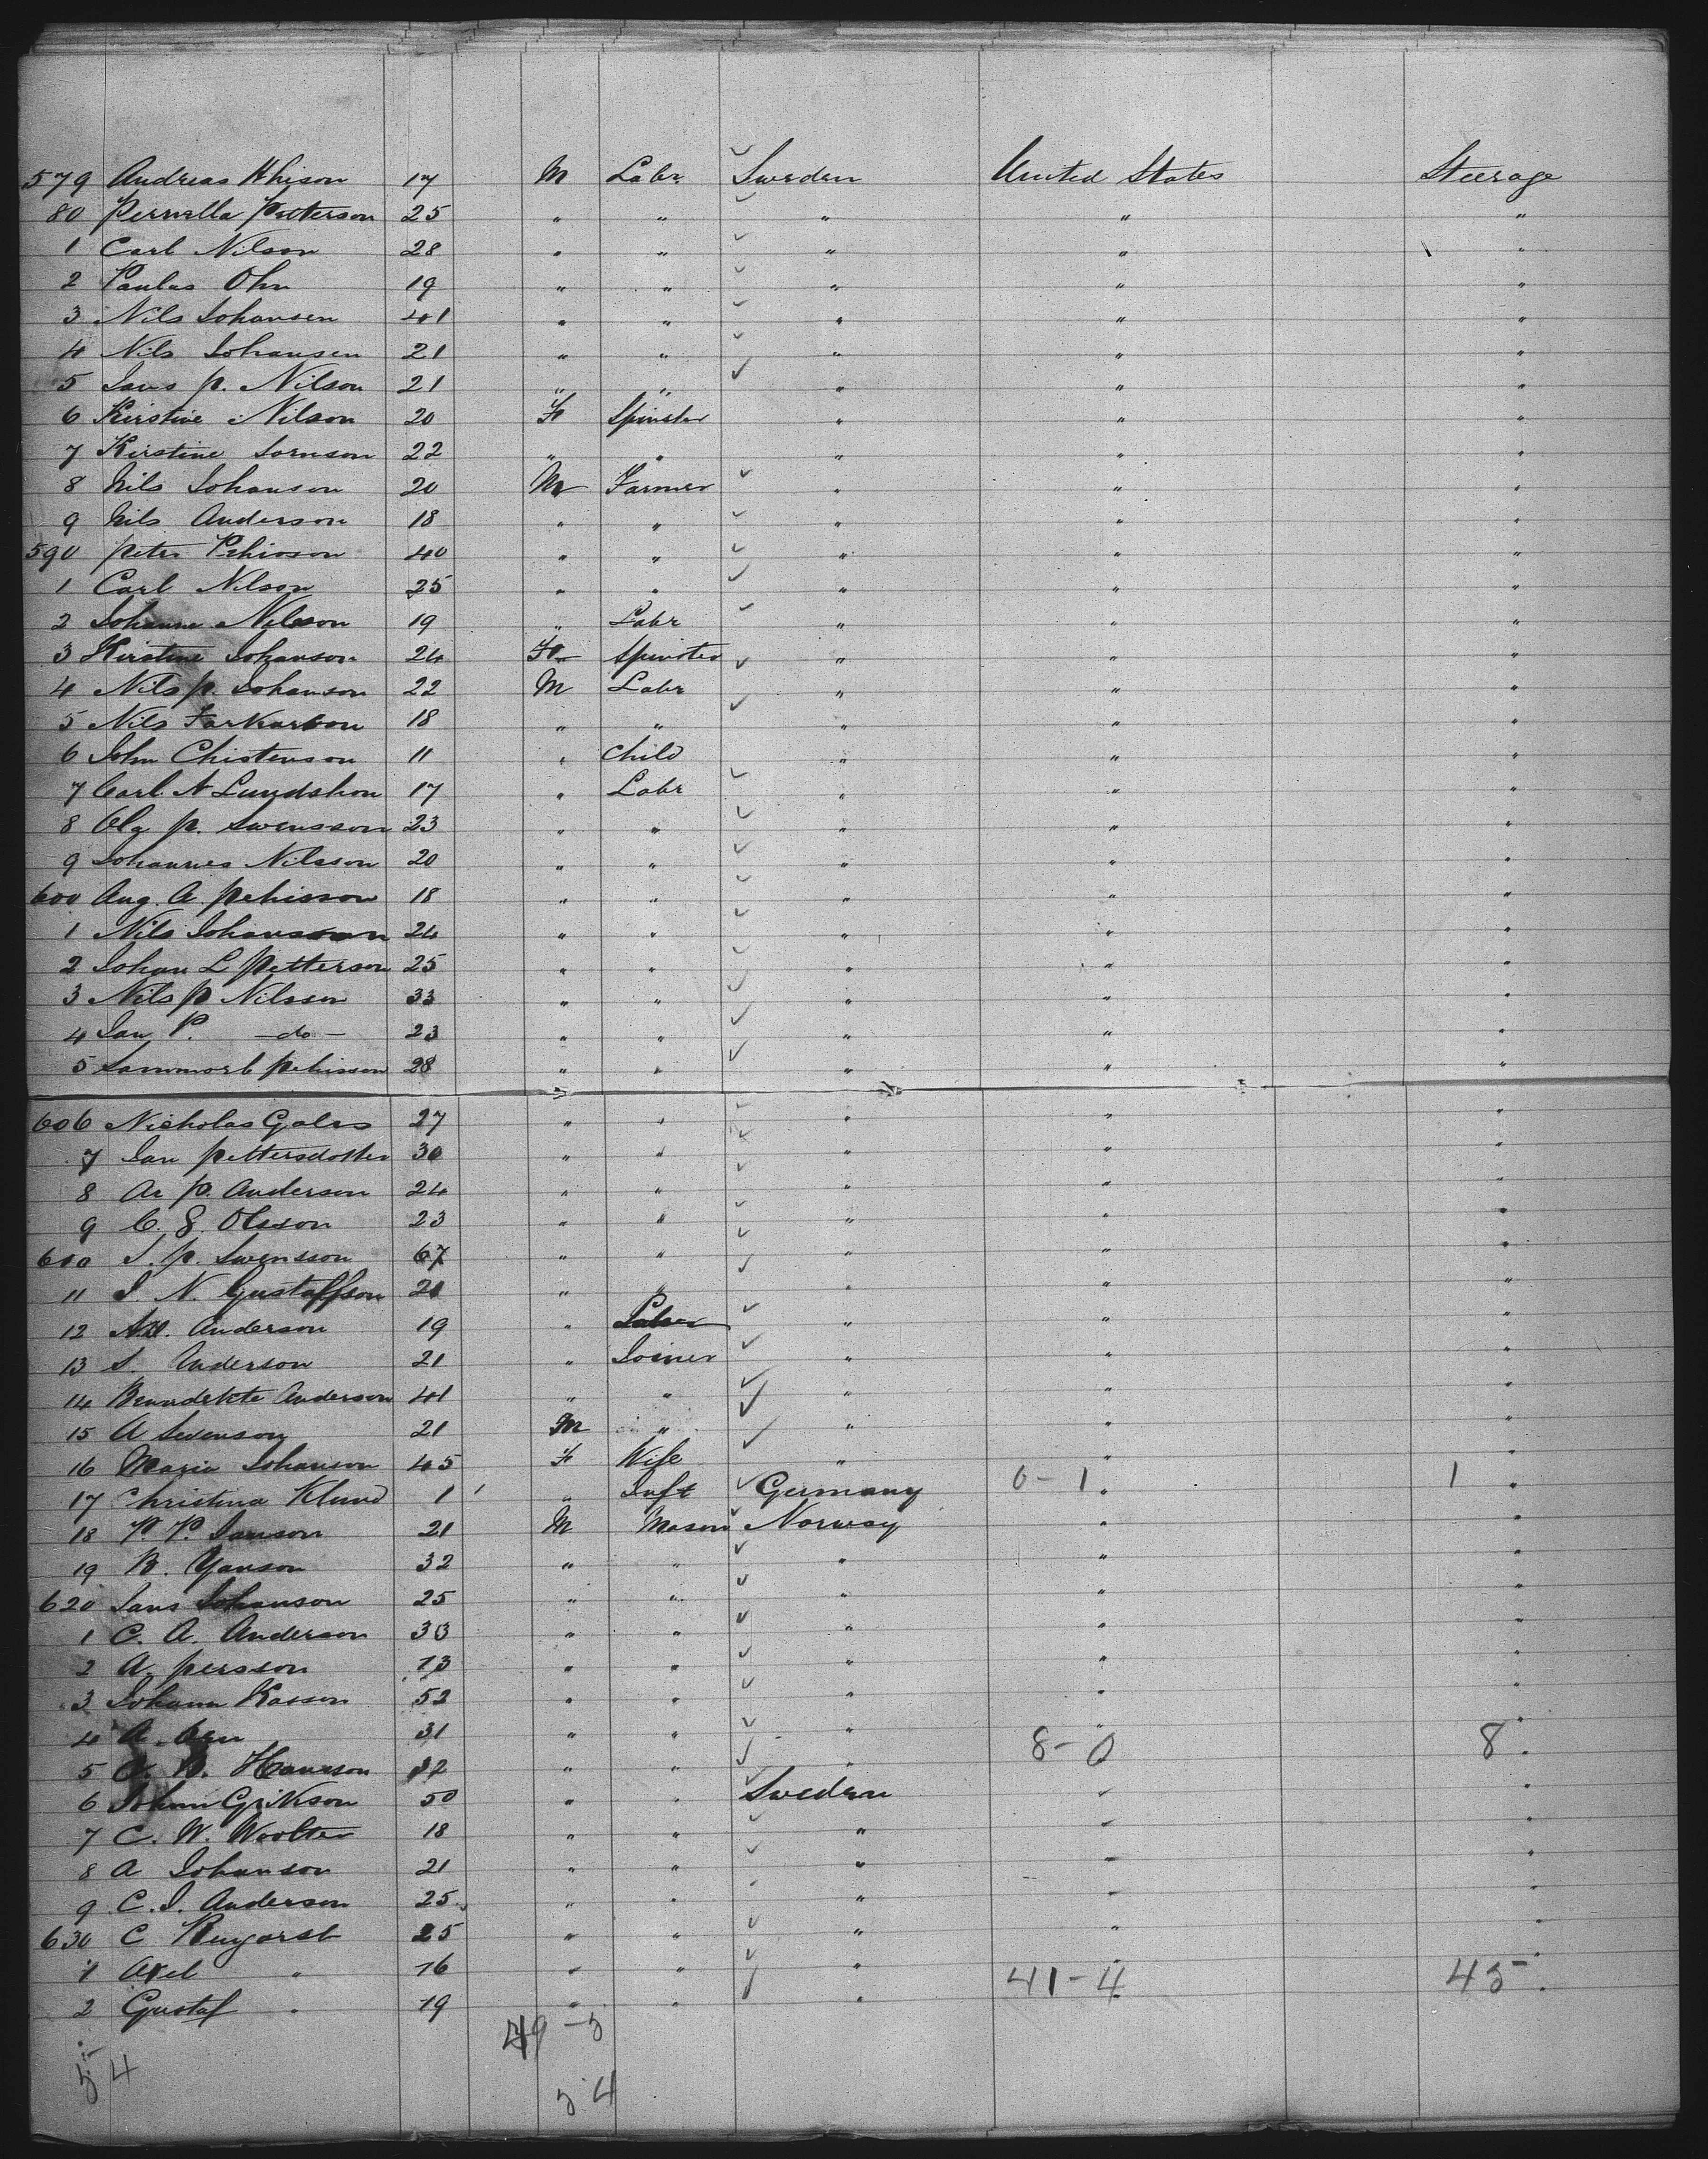 579 Andreas 17 M Labr Sweden United States Steerage
80 Pernella Petterson 25 " " " " "
1 Carl Nilson 28 " " " " "
2 Paulus Ohn 19 " " " " "
3 Nils Johansen 41 " " " " "
4 Nils Johansen 21 " " " " "
5 Jans P. Nilson 21 " " " " "
6 Kerstine Nilson 20 F Spinster " " "
7 Kerstine Sornson 22 " " " " "
8 Nils Johanson 20 M Farmer " " "
9 Nils Anderson 18 " " " " "
590 Peter Pehisson 40 " " " " "
1 Carl Nilson 25 " " " " "
2 Johanne Nilsson 19 " Labr " " "
3 Kirstine Johanson 24 F Spinster " " "
4 Nils P. Johanson 22 M Labr " " "
5 Nils 18 " " " " "
6 John Chistenson 11 " Child " " "
7 Carl N Lundshon 17 " Labr " " "
8 Ola P. Swensson 23 " " " " "
9 Johannes Nilsson 20 " " " " "
600 Aug. A. Pehisson 18 " " " " "
1 Nils Johansson 24 " " " " "
2 Johan L Petterson 25 " " " " "
3 Nils P Nilsson 33 " " " " "
4 Jan P. -do- 23 " " " " "
5 Pehisson 28 " " " " "
606 Nicholas Galrs 27 " " " " "
7 Jan Pettersdotter 30 " " " " "
8 Ar P. Anderson 24 " " " " "
9 C. G. Olsson 23 " " " " "
610 S. P. Swensson 67 " " " " "
11 J. N. Gustaffson 21 " " " " "
12 Anderson 19 " Labr " " "
13 S. Anderson 21 " Joiner " " "
14 Benndekte Anderson 41 " " " " "
15 A Swenson 21 M " " " "
16 Maria Johanson 45 F Wife " " "
17 Christina Klund 1 " Inft Germany 0-1 " 1 "
18 P. P. Janson 21 M Mason Norway " "
19 B. Yanson 32 " " " " "
620 Jans Johanson 25 " " " " "
1 C. A. Anderson 33 " " " " "
2 A. Persson 13 " " " " "
3 Johann Kasson 52 " " " " "
4 A. 31 " " " " "
8-0 8
5 Hanrson 32 " " "
6 Johann Grikson 50 " " Sweden " "
7 C. W. Woolter 18 " " " " "
8 A Johanson 21 " " " " "
9 C. J. Anderson 25 " " " " "
630 C 25 " " " " "
1 Axel " 16 " " " " "
41-4 45
2 Gustaf " 19 " " "
49-5
54
54